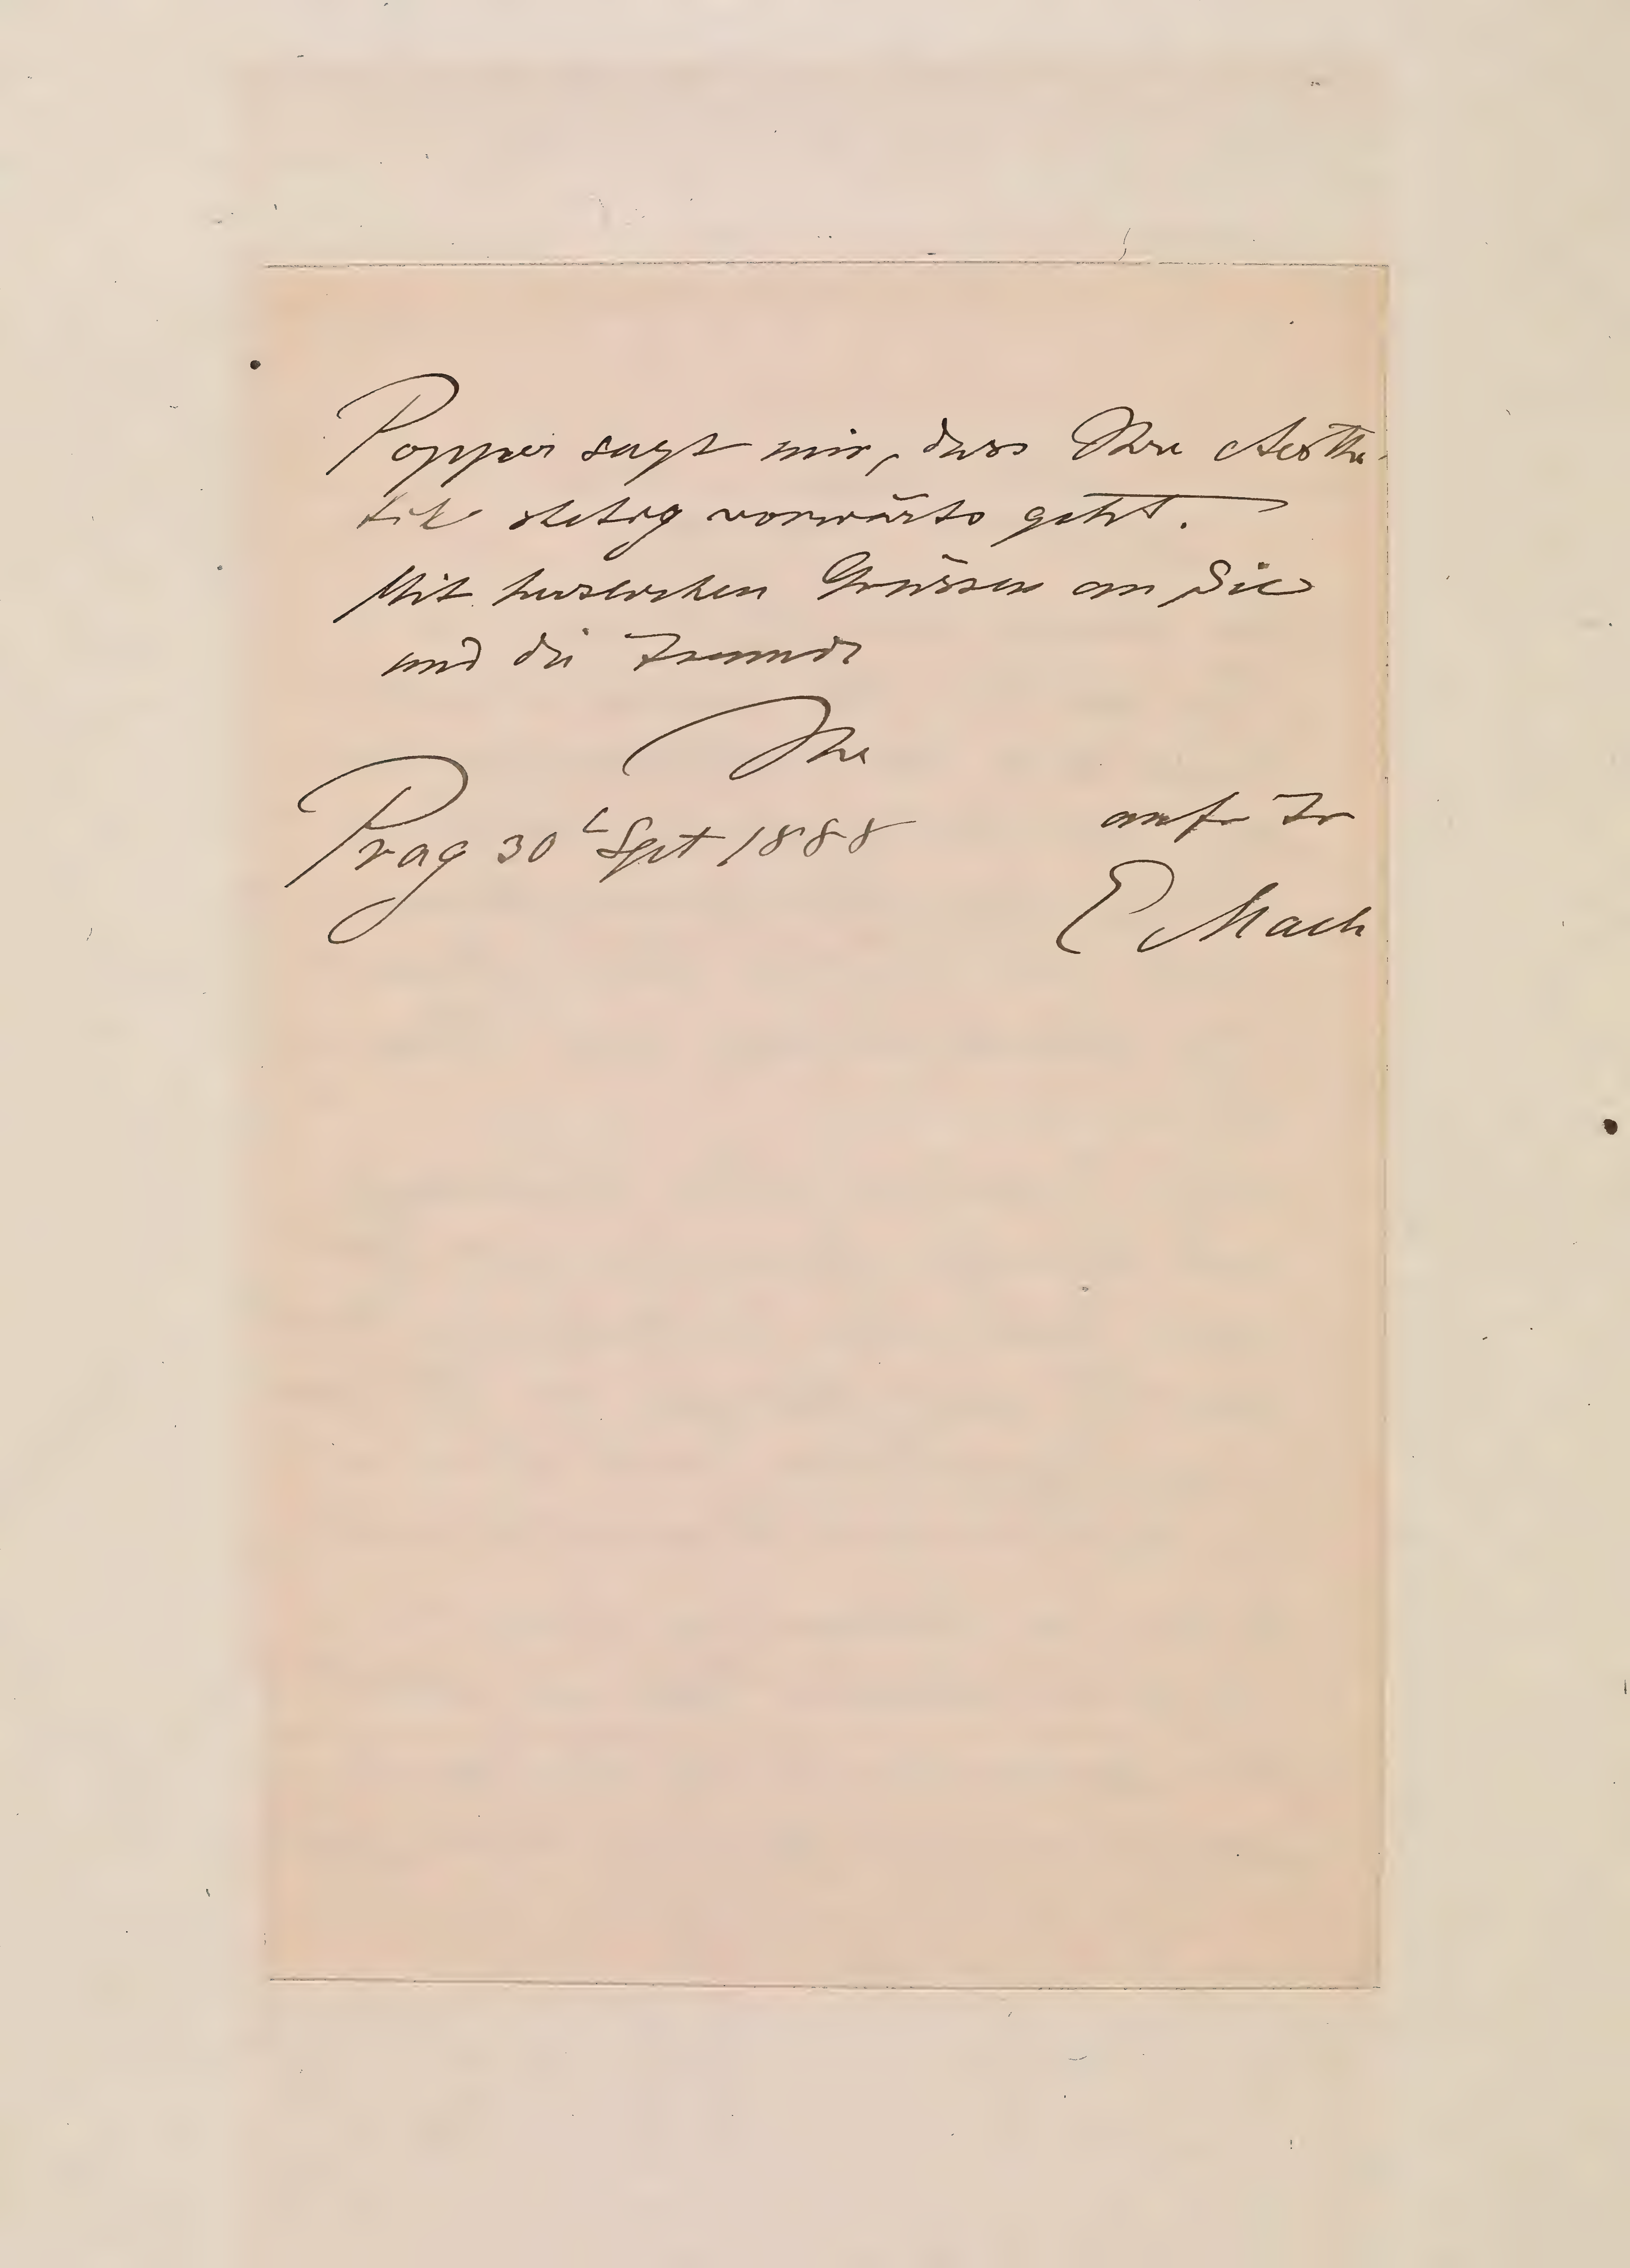 Popper sagt mir, dass Ihre Aesthe-
tik stetig vorwärts geht.
Mit herzlichen Grüssen an Sie
und die Freunde
Ihr
aufr Fr
Prag 30t Spt 1888
E Mach